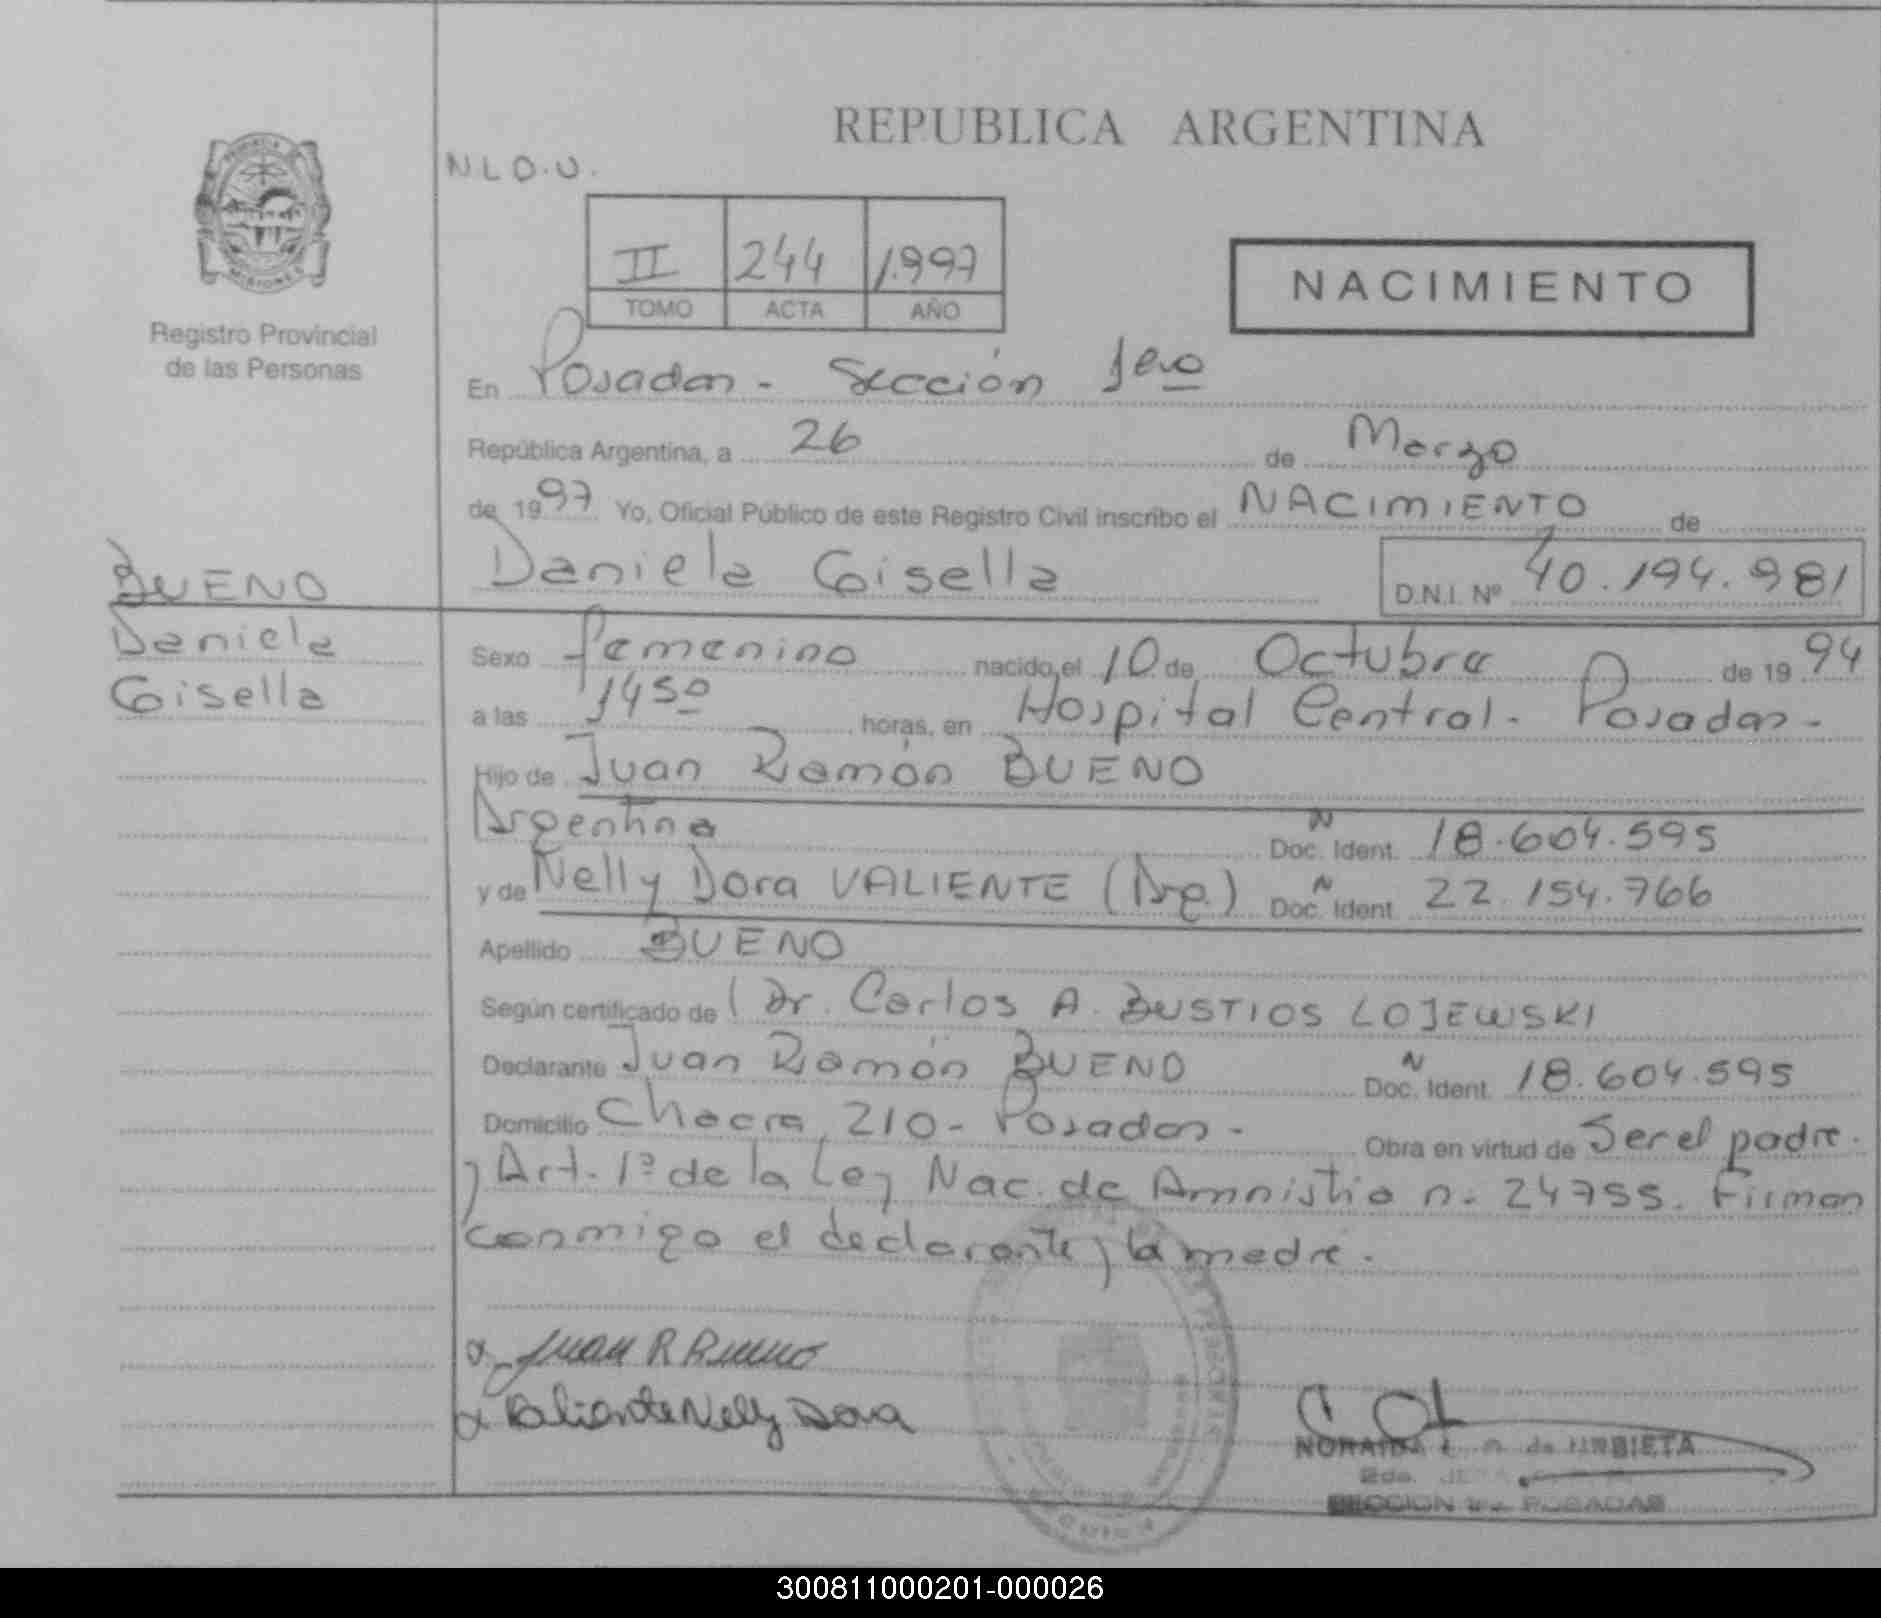 REPUBLICA ARGENTINA
N L D . U .
II 244 1.997
TOMO ACTA AÑO
NACIMIENTO
MISIONES
Registro Provincial
de las Personas
En Posadas - Sección 1era
República Argentina, a 26 de Marzo
de 1997 Yo, Oficial Público de este Registro Civil inscribo el NACIMIENTO de
Daniela Gisella D.N.I. Nº 40.194.981
BUENO
Daniela
Gisella
Sexo femenino nacido el 10 de Octubre de 1994
a las 1450 horas, en Hospital Central - Posadas -
Hijo de Juan Ramón BUENO
Argentina Doc. Ident. N 18.604.595
y de Nelly Dora VALIENTE (Arg.) Doc. Ident N 22.154.766
Apellido BUENO
Según certificado de Dr. Carlos A. BUSTIOS LOJEWSKI
Declarante Juan Ramón BUENO Doc. Ident. N 18.604.595
Domicilio Chacra 210 - Posadas - Obra en virtud de Ser el padre.
y Art. 1º de la Ley Nac. de Amnistia n. 24755. Firman
conmigo el declarante y la madre.
x Juan R Bueno
x Valiente Nelly Dora
de URBIETA
2da. JEFA
SECCION 1ra. POSADAS
300811000201-000026